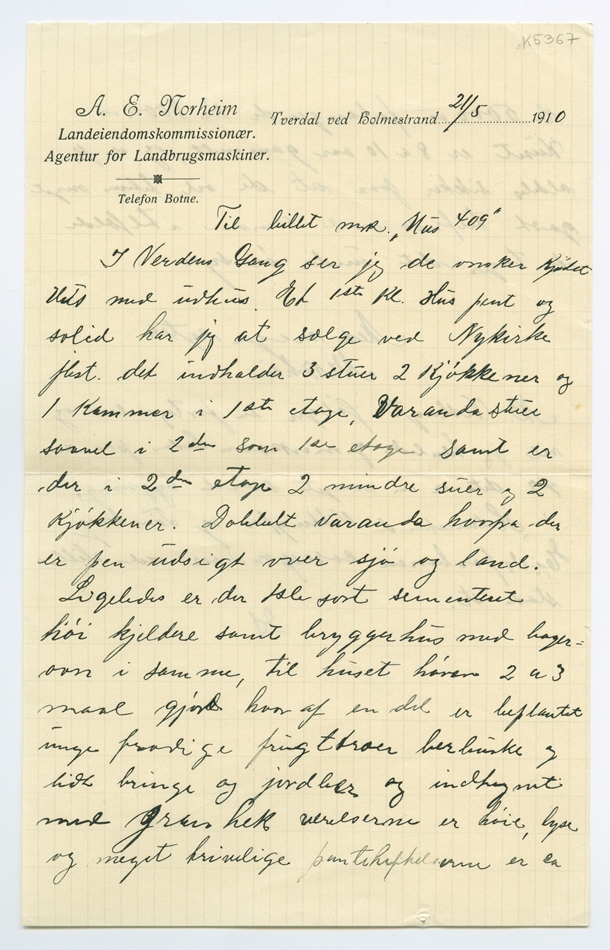 K5367
A. E. Norheim
Landeiendomskommissionær.
Agentur for Landbrugsmaskiner.
Telefon Botne.
Tverdal ved Holmestrand 21/5 1910
Til billet mrk. „Hus 409"
I Verdens Gang ser jeg de ønsker Kjøbet
Hus med udhus. Et 1ste Kl. Hus pent og
solid har jeg at sælge ved Nykirke
det indholder 3 stuer 2 Kjøkkener og
1 Kammer i 1ste etage, Varanda stue
saavel i 2den som 1ste etage samt er
der i 2den etage 2 mindre stuer og 2
Kjøkkener. Dobbelt varanda hvorfra der
er pen udsigt over sjø og land.
Ligeledes er der 1ste sort sementeret
høi kjeldere samt bryggerhus med bager=
ovn i samme, til huset hører 2 a 3
maal gjord hvor af en del er beplantet
unge frodige frugttroer berbuske og
lidt bringe og jordbær og indhegnet
med Gran hek værelserne er høie, lyse
og meget trivelige pantehæftelserne er ca